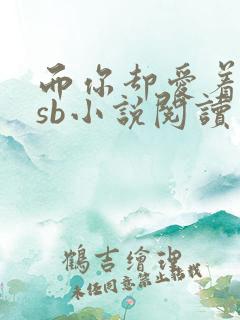 而你却爱着
sb小説閱讀
鶴吉繪理
未经同意禁止转载